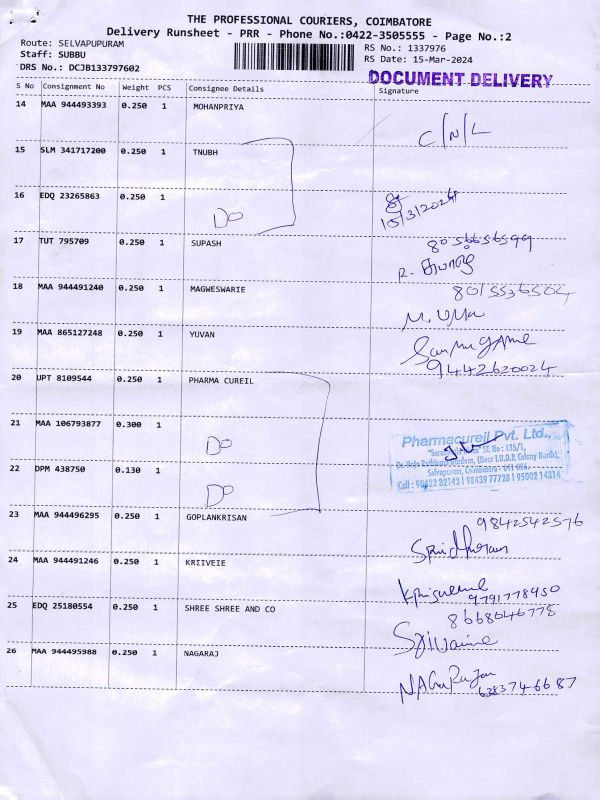 THE PROFESSIONAL COURIERS, COIMBATORE
Delivery Runsheet - PRR - Phone No.:0422-3505555 - Page No.:2
Route: SELVAPUPURAM
RS No.: 1337976
Staff: SUBBU
RS Date: 15-Mar-2024
DRS No.: DCJB133797602
DOCUMENT DELIVERY
S No Consignment No Weight PCS Consignee Details Signature
14 MAA 944493393 0.250 1 MOHANPRIYA
C/N/L
15 SLM 341717200 0.250 1 TNUBH
16 EDQ 23265863 0.250 1
Do
15/3/2024
17 TUT 795709 0.250 1 SUPASH
8056656599
R.
18 MAA 944491240 0.250 1 MAGWESWARIE
8015536504
M. UMA
19 MAA 865127248 0.250 1 YUVAN
9442620024
20 UPT 8109544 0.250 1 PHARMA CUREIL
21 MAA 106793877 0.300 1
Do
Pharmacureil Pvt. Ltd.,
SF. No : 135/1,
(Near T.U.D.P. Colony North),
Selvapuram, Coimbatore - 641 026.
Cell : 90422 32143 | 98439 77728 | 95002 14314
22 DPM 438750 0.130 1
Do
23 MAA 944496295 0.250 1 GOPLANKRISAN
9842542576
24 MAA 944491246 0.250 1 KRIIVEIE
9791778950
25 EDQ 25180554 0.250 1 SHREE SHREE AND CO
8668646778
26 MAA 944495988 0.250 1 NAGARAJ
NAGaRajan
6383746687